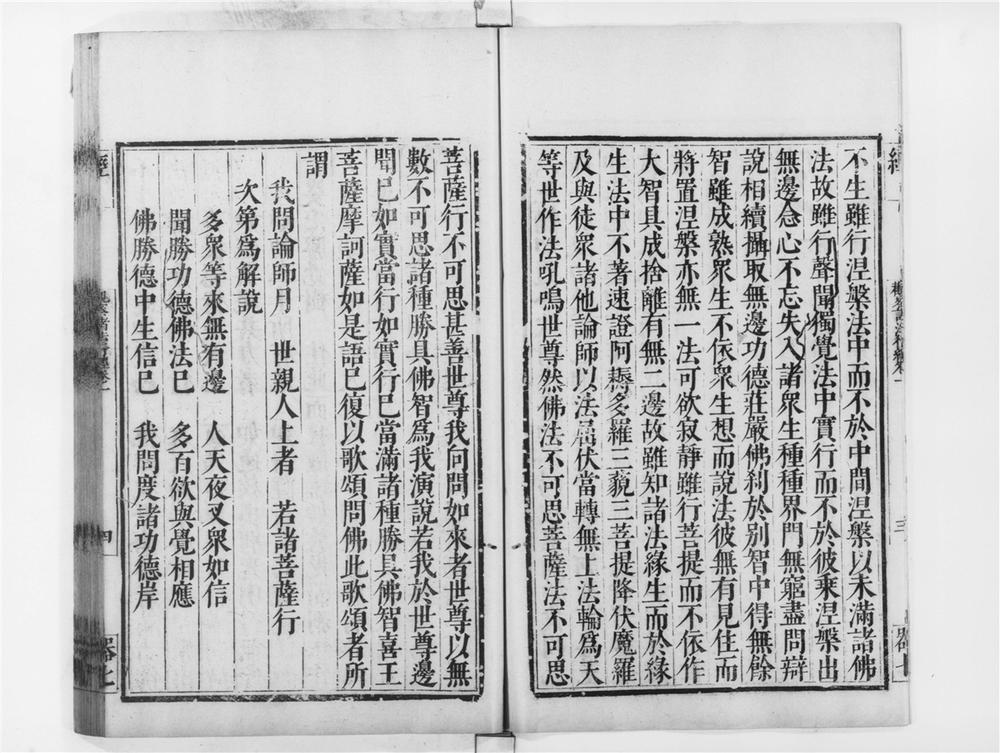 不生雖行涅槃法中而不於中間涅槃以未滿諸佛
法故雖行聲聞獨覺法中實行而不於彼乘涅槃出
無邊念心不忘失入諸衆生種種界門無窮盡問辯
說相續攝取無邊功德莊嚴佛刹於別智中得無餘
智雖成熟衆生不依衆生想而說法彼無有見住而
將置涅槃亦無一法可欲寂靜雖行菩提而不依作
大智具成捨離有無二邊故雖知諸法緣生而於緣
生法中不著速證阿耨多羅三藐三菩提降伏魔羅
及與徒衆諸他論師以法屈伏當轉無上法輪爲天
等世作法吼鳴世尊然佛法不可思菩薩法不可思
菩薩行不可思甚善世尊我向問如來者世尊以無
數不可思諸種勝具佛智爲我演說若我於世尊邊
聞已如實當行如實行已當滿諸種勝具佛智喜王
菩薩摩訶薩如是語已復以歌頌問佛此歌頌者所
謂
我問論師月　世親人上者　若諸菩薩行
次第爲解說
多衆等來無有邊　人天夜叉衆如信
聞勝功德佛法已　多百欲與覺相應
佛勝德中生信已　我問度諸功德岸
經
四